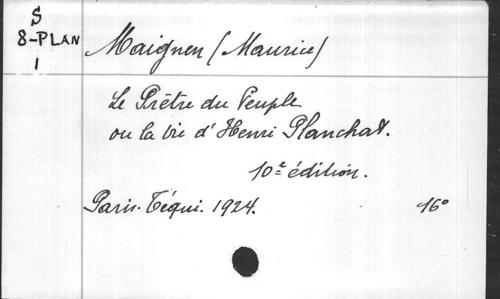 S
8-PLAN
1
Maignen (Maurice)
Le Prêtre du Peuple
ou la vie d'Henri Planchat.
10e édition.
Paris. Téqui. 1924. 16°